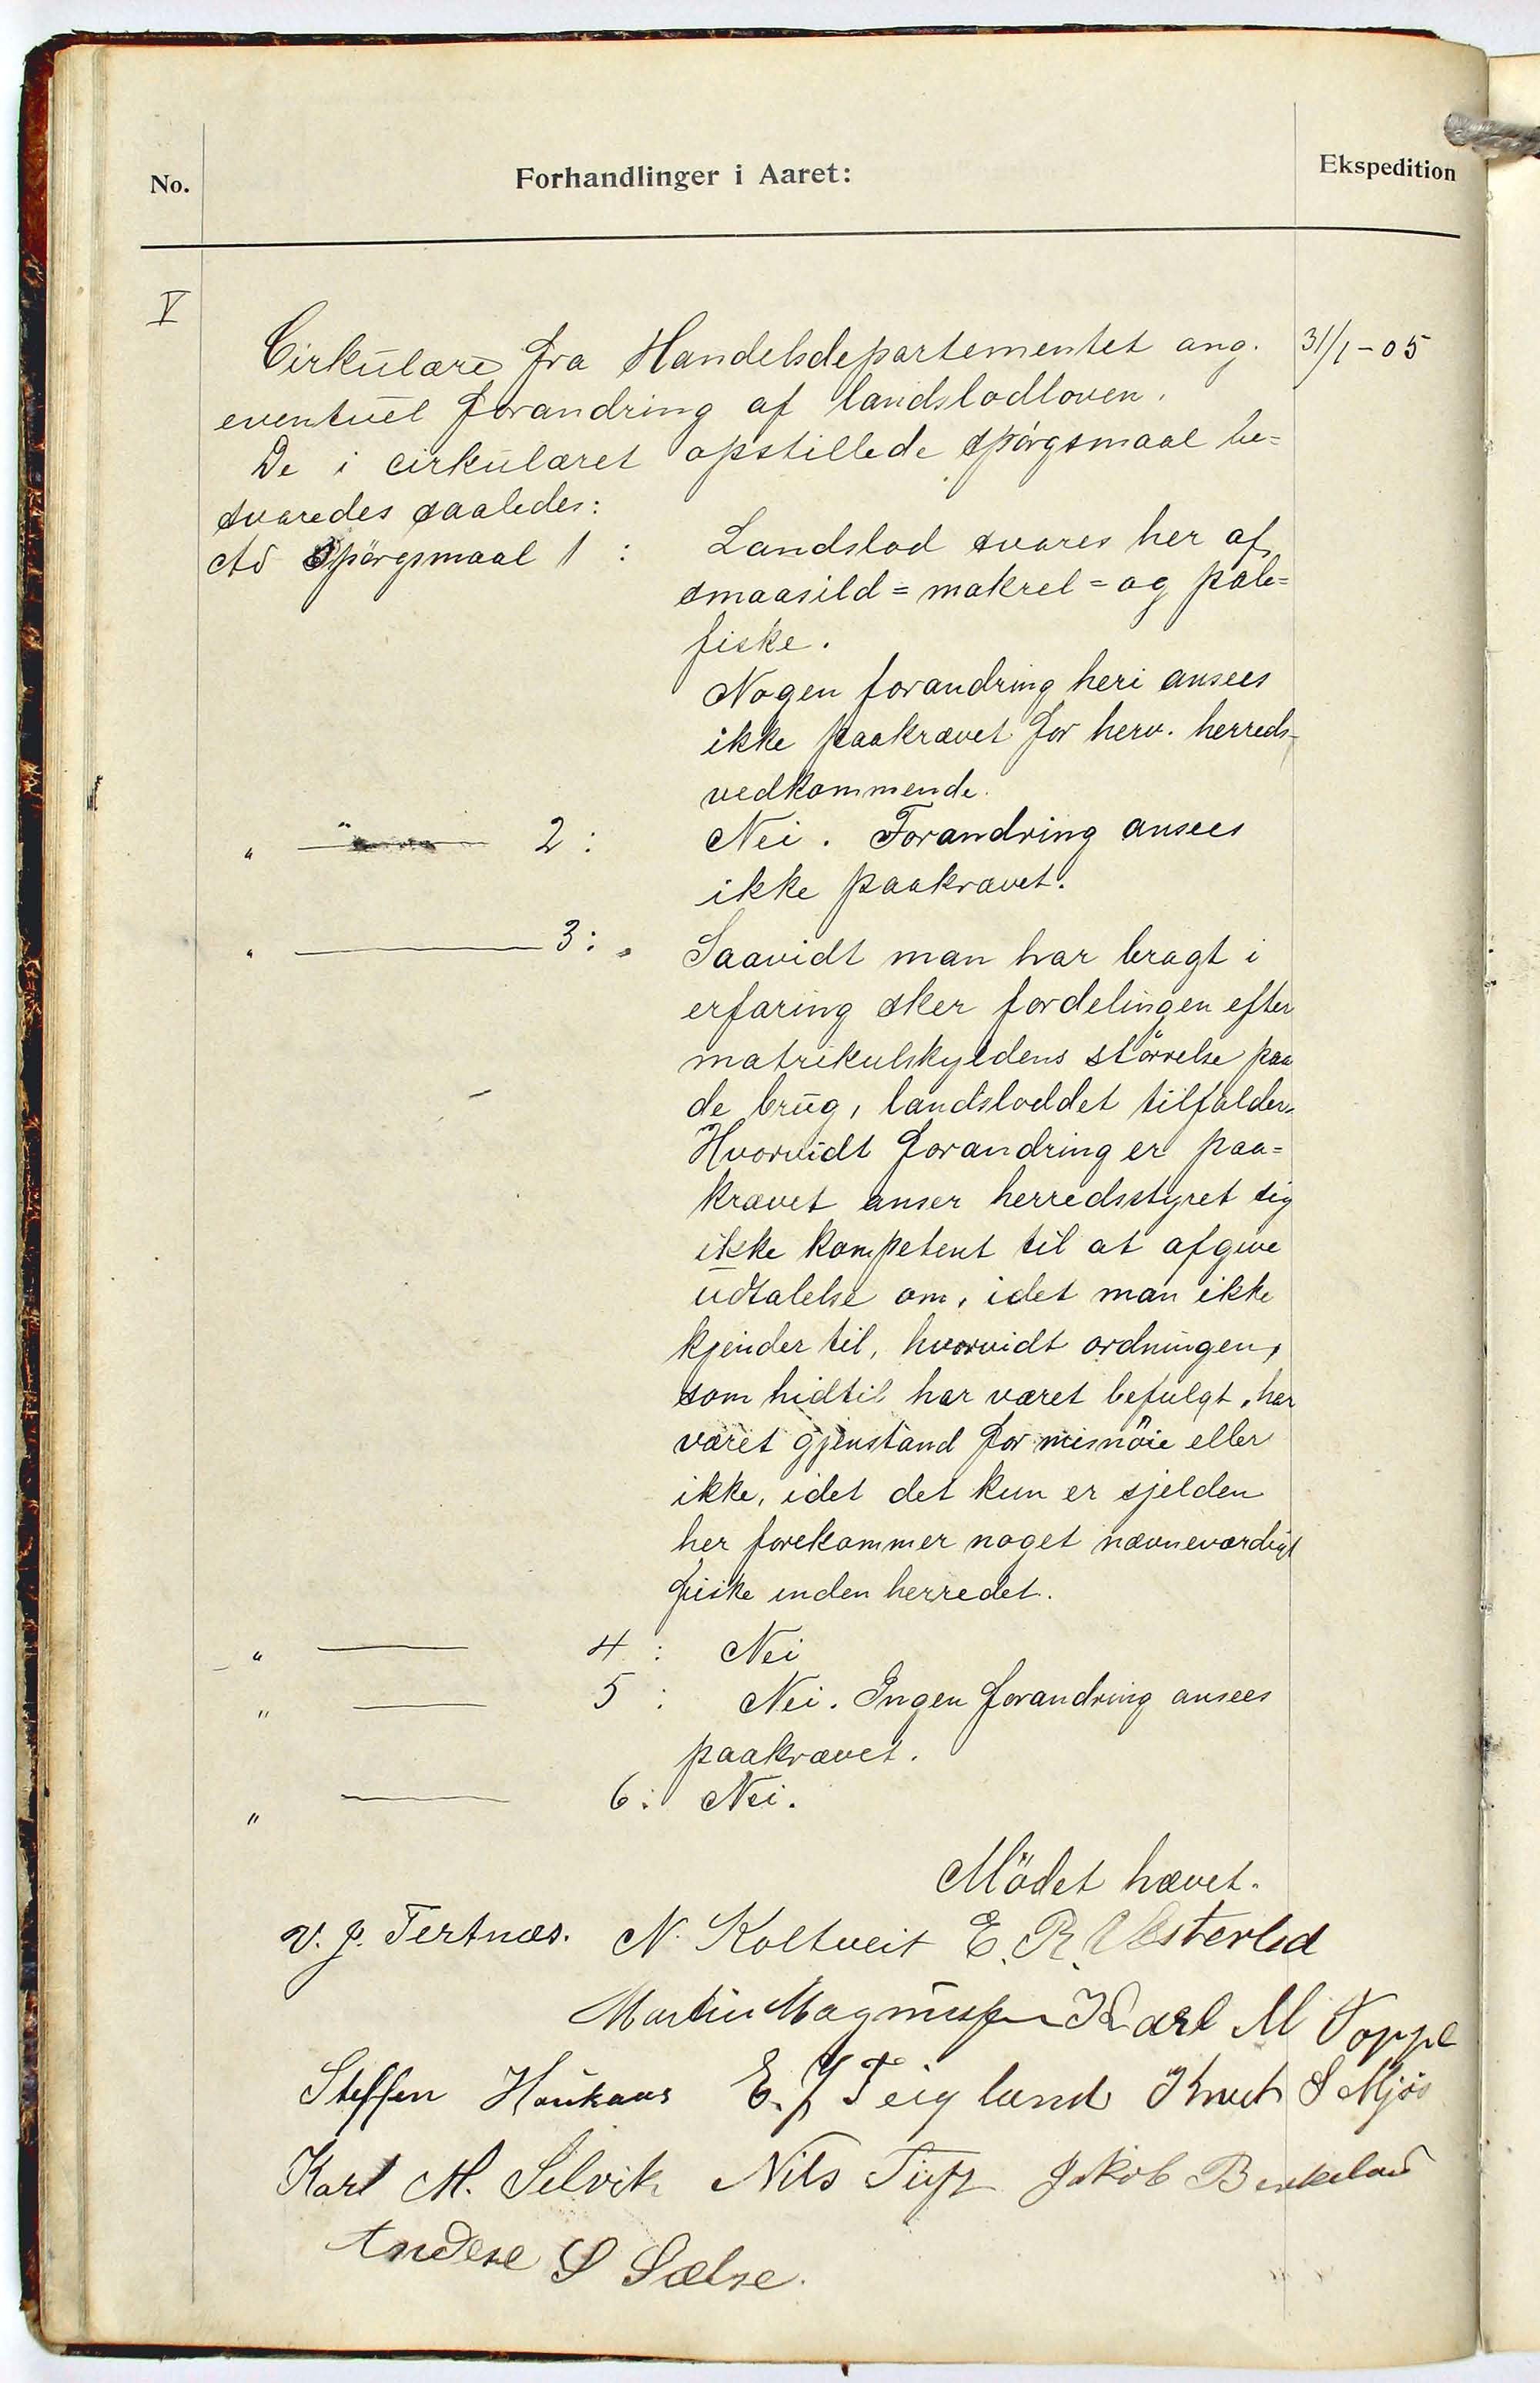 No. Forhandlinger i Aaret: Ekspedition
V
Cirkulære fra Handelsdepartementet ang. 31/1-05
eventuel forandring af landslodloven.
De i cirkulæret opstillede spörgsmaal be=
svaredes saaledes:
Ad Spörgsmaal 1 : Landslod svares her af
smaasild= makrel= og pale=
fiske.
Nogen forandring heri ansees
ikke paakrævet for herv. herreds-
vedkommende.
" — 2 : Nei. Forandring ansees
ikke paakrævet.
" — 3 : Saavidt man har bragt i
erfaring sker fordelingen efter
matrikulskyldens störrelse paa
de brug, landsloddet tilfalder.
Hvorvidt forandring er paa=
krævet anser herredsstyret sig
ikke kompetent til at afgive
udtalelse om, idet man ikke
kjender til, hvorvidt ordningen,
som hidtil har været befulgt, har
været gjenstand for misnöie eller
ikke, idet det kun er sjelden
her forekommer noget nævneværdigt
fiske inden herredet.
" — 4 : Nei
" — 5 : Nei. Ingen forandring ansees
paakrævet.
" — 6 : Nei.
Mödet hævet.
V. J. Tertnæs. N. Koltveit E. R. Vesterlid
Martin Magnussen Karl M Toppe
Steffen Haukaas E. J Teigland Knut S Mjös
Karl M. Selvik Nils Tuft Jakob Birkeland
S Sælse.